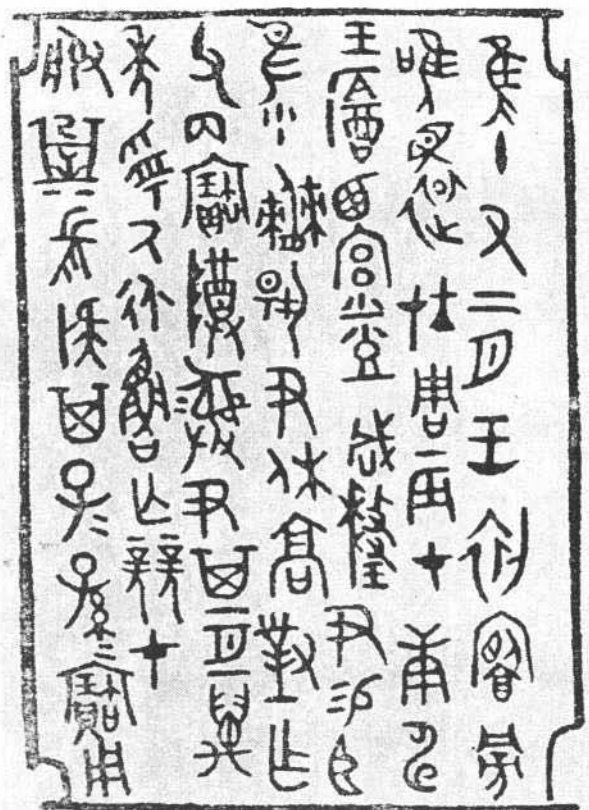 隹十又二月王初饔旁
唯還在周辰才庚申
王酓西宮登咸釐尹易臣
隹小僰揚尹休高對乍
父丙寶尊彝尹其亙萬
年受氒永魯亡競才
服㠱長疑其子=孫=寶用